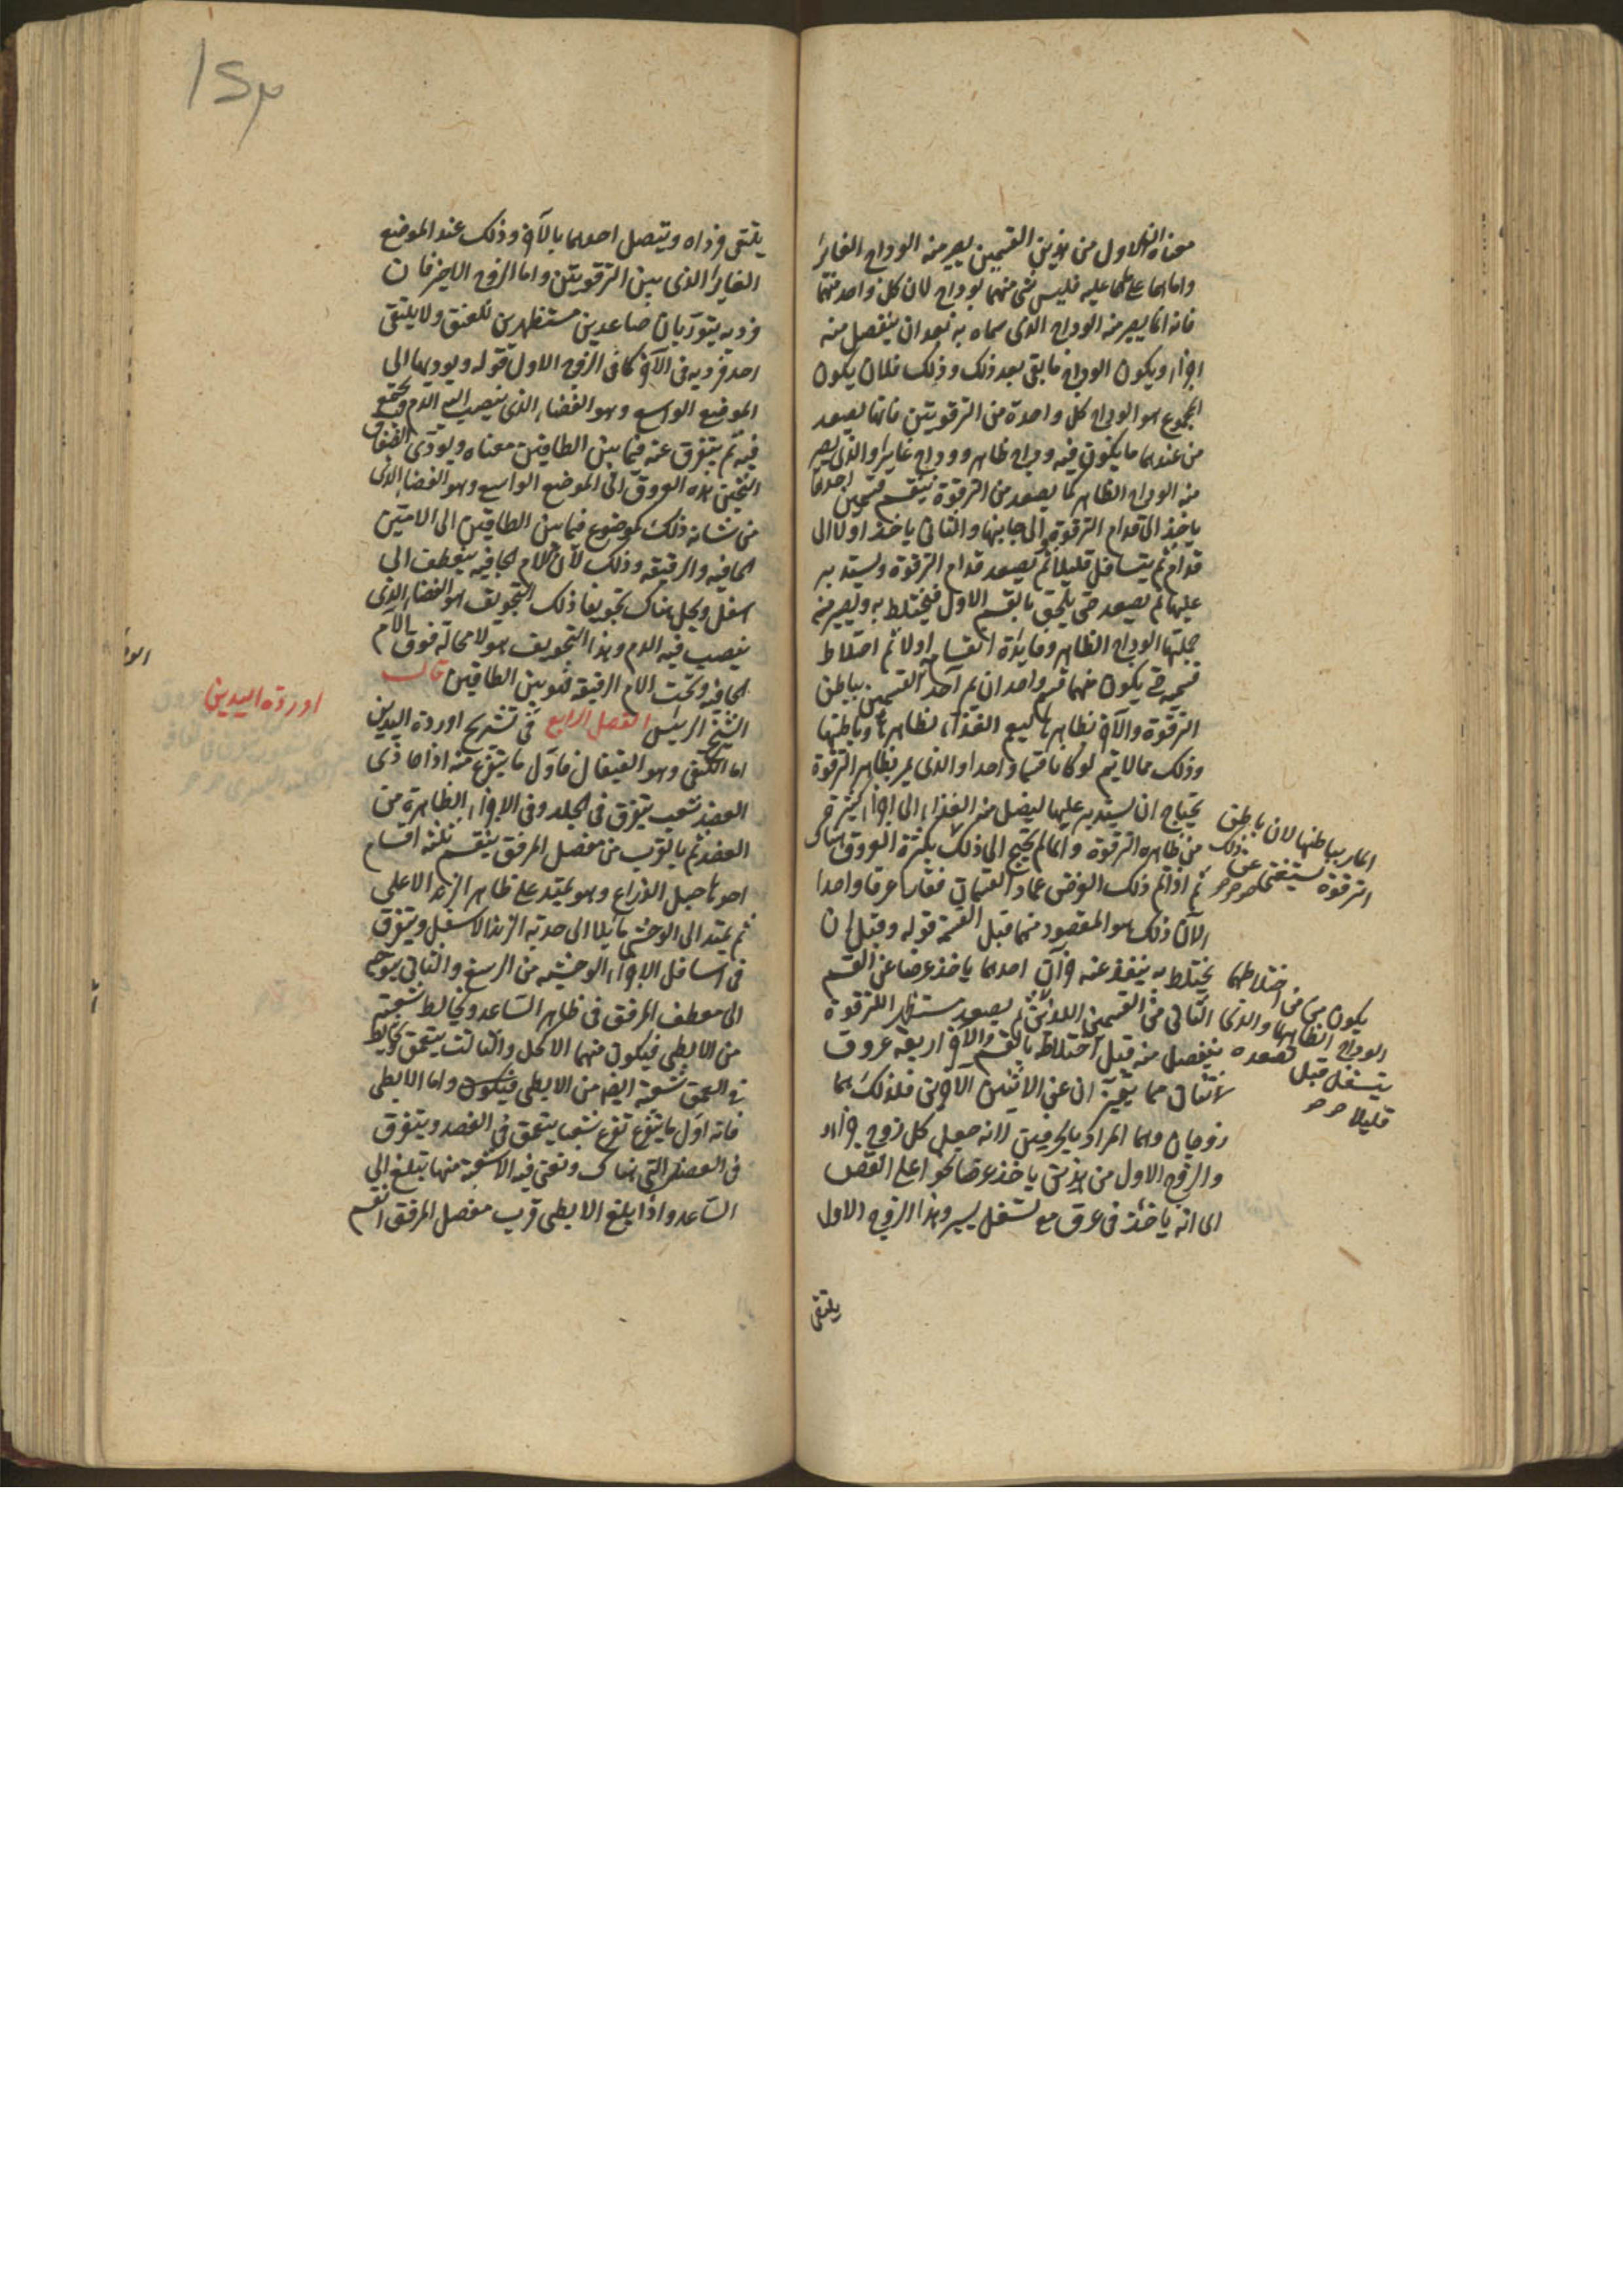 معناه ان الاول من هذين القسمين يصير منه الوداج الغاير
واما هما على ما عليه فليس شي منهما بوداج لان كل واحد منهما
فانه انما يصير منه الوداج الذى سماه به بعد ان ينفصل منه
اجزاء ويكون الوداج ما بقى بعد ذلك وذلك فلان يكون
المجموع هو الوداج كل واحدة من الترقوتين فانها يصعد
من عندها ما يكون فيه وداج ظاهر ووداج غاير والذى يصير
منه الوداج الظاهر كما يصعد من الترقوة ينقسم قسمين احدهما
ياخذ الى قدام الترقوة والى جانبها والثانى ياخذ اولا الى
قدام ثم يتسافل قليلا ثم يصعد قدام الترقوة ويستدير
عليها ثم يصعد حتى يلحق بالقسم الاول فيختلط به ويصير منه
جملتها الوداج الظاهر وفايدة انقسام اولا ثم اختلاط
قسميه حتى يكون منهما قسم واحد ان يمر احد القسمين بباطن
الترقوة والاخر بظاهرها ليعم الغذاء لظاهرها وباطنها
وذلك مما لا يتم لو كانا قسما واحدا والذى يمر بظاهر الترقوة
يحتاج ان يستدير عليها ليصل منه الغذاء الى اجزاء كثيرة
من ظاهره الترقوة وانما لم يحتج الى ذلك بكثرة العروق هناك
ثم اذا تم ذلك الغرض عاد القسمان فصارا عرقا واحدا
المار بباطنها لان باطن
الترقوة يستغنى عن ذلك
لان ذلك هو المقصود منهما قبل القسمة قوله وقبل ان
يختلط به ينفذ عنه جزآن احدهما ياخذ عرضا عن القسم
والذى الثانى من القسمين اللذين ثم يصعد مستظهر الترقوة
ينفصل منه قبل اختلاطه بالقسم الاخر اربعة عروق
يكون من اختلاطهما
الوداج الظاهر
يتسفل قبل تصعده
قليلا
اثنان مما يتميز ان عن الاثنين الاخرين فلذلك هما
زوجان وهما المراد بالجزئين لانه جعل كل زوج جزءا
والزوج الاول من هذين ياخذ عرضا نحو اعلى القص
الى انه ياخذ فى عرق مع تسفل يسير وهذا الزوج الاول
يلتقى
يلتقى فرداه ويتصل احدهما بالاخر وذلك عند الموضع
الغاير الذى بين الترقوتين واما الزوج الاخر فان
فرديه يتوربان صاعدين مستظهرين للعنق ولا يلتقى
احد فرديه فى الاخر كما فى الزوج الاول قوله ويوديها الى
الموضع الواسع وهو الفضاء الذى ينصب اليه الدم ويجتمع
فيه ثم يتفرق عنه فيما بين الطاقين معناه ويودى الصفاق
الثخين هذه العروق الى الموضع الواسع وهو الفضاء الذى
من شانه ذلك موضوع فيما بين الطاقين الى الامين
الجافيه والرقيقه وذلك لان الام الجافيه ينعطف الى
اسفل ويجل هناك تجويفا ذلك التجويف هو الفضاء الذى
ينصب فيه الدم وهذا التجويف هو لا محاله فوق الام
الجافيه وتحت الام الرقيقه فهو بين الطاقين قال
الشيخ الرئيس الفصل الرابع فى تشريح اوردة اليدين
اوردة اليدين
اما الكتفى وهو القيفال فاول ما يتفرع منه اذا حاذى
العضد شعب يتفرق فى الجلد وفى الاجزاء الظاهرة من
العضد ثم بالقرب من مفصل المرفق ينقسم ثلثه اقسام
احدها حبل الذراع وهو يمتد على ظاهر الزند الاعلى
ثم يمتد الى الوحشى مائلا الى حدبة الزند الاسفل ويتفرق
فى اسافل الاجزاء الوحشيه من الرسغ والثانى يتوجه
الى معطف المرفق فى ظاهر الساعد ويخالط شعبة
من الابطى فيكون منهما الاكحل والثالث يتعمق ويخالط
فى العمق شعبة ايضا من الابطى فيكون واما الابطى
فانه اول ما يتفرع تفرع شعبا يتعمق فى العضد ويتفرق
فى العضل التى هناك وتفنى فيه الا شعبة منها تبلغ الى
الساعد واذا بلغ الابطى قرب مفصل المرفق انقسم